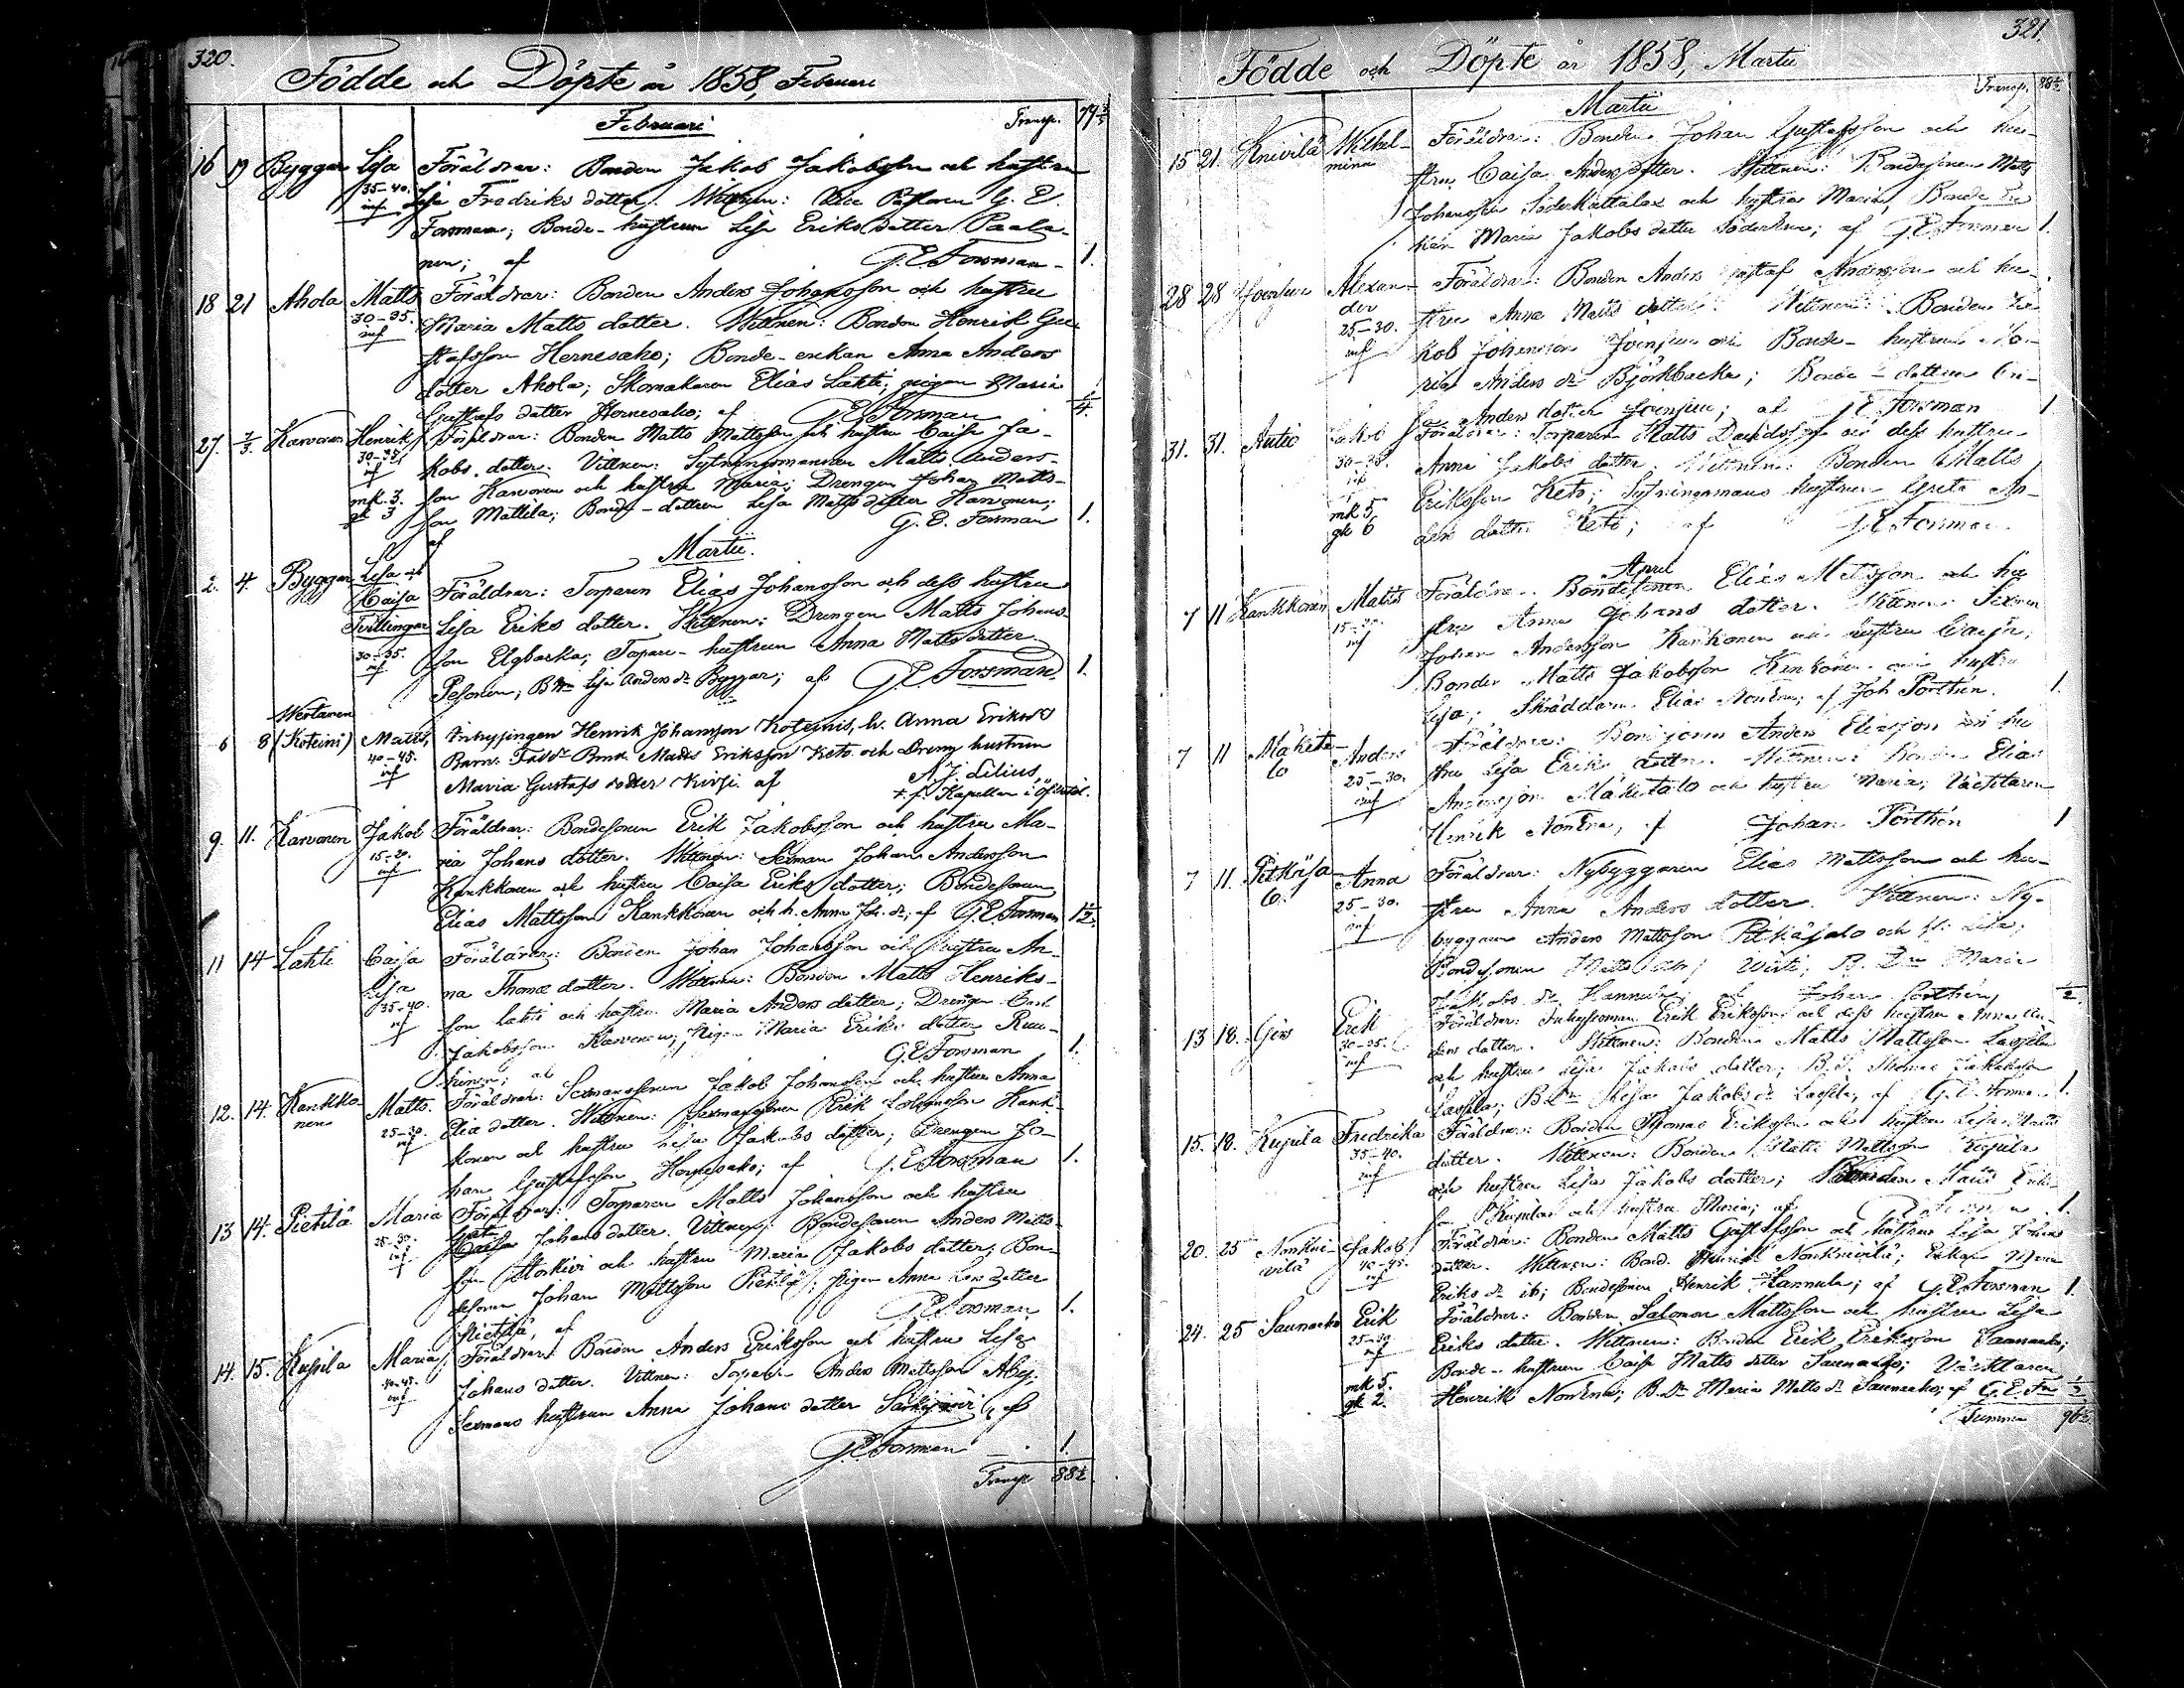 320.
Födde och Döpte år 1858, Februari
Februari
Transp.
16 19 Byggar Lisa Föräldrar: Bonden Jakob Jakobsson och hustru
35-40. Lisa Fredriks dotter. Wittnen: G. E.
Forsman; Bonde-hustrun Lisa Eriks dotter Paala-
nen; af G. E. Forsman 1.
18 21 Ahola Matts Föräldrar: Bonden Anders Johansson och hustru
30-35. Maria Matts dotter. Wittnen: Bonden Henrik Gu-
stafsson Hernesaho; Bonde-enkan Anna Anders
dotter Ahola; Skomakaren Elias Lahti; pigan Maria
Gustafs dotter Hernesaho; af G. E. Forsman
27. Karvonen Henrik Föräldrar: Bonden Matts Mattsson och hustru Caisa Ja-
30-35 kobs dotter. Vittnen: Sytningsmannen Matts Anders-
mk. 3. son Karvonen och hustru Maria; Drengen Johan Matts-
gk 3 son Mattila; Bonde-dottren Lisa Matts dotter Karvonen;
af G. E. Forsman 1.
Martii.
2. 4. Byggar Lisa och Föräldrar: Torparen Elias Johansson och dess hustru
Caisa Lisa Eriks dotter. Wittnen: Drengen Matts Johans-
Tvillingar son Elgbacka; Torpare-hustrun Anna Matts dotter
30-35. Pesonen; Lisa Anders dr Byggar; af G. E. Forsman 1.
Wertanen
6 8 (Koteini) Matts, Inhysingen Henrik Johansson Koteinis, h. Anna Eriksds
40-45. Barn. Matts Eriksson Keto och Dreng hustrun
Maria Gustafs dotter af A. J. Lilius
t. f. Kapellan i
9. 11. Karvonen Jakob Föräldrar: Bondesonen Erik Jakobsson och hustru Ma-
15-20. ria Johans dotter. Wittnen: Sexman Johan Andersson
Kankkonen och hustru Caisa Eriks dotter; Bondesonen
Elias Mattsson Kankkonen och h. Anna Joh. dr; af G. E. Forsman
11 14 Lahti Caisa Föräldrar: Bonden Johan Johansson och hustru An-
Lisa na Thomæ dotter. Wittnen: Bonden Matts Henriks-
35-40. son Lahti och hustru Maria Anders dotter; Drengen
Jakobsson Karvonen; Pigan Maria Eriks dotter
af G. E. Forsman 1.
12. 14. Kankko- Matts. Föräldrar: Sexmanssonen Jakob Johansson och hustru Anna
nen 25-30. Eliæ dotter. Wittnen: Sexmanssonen Erik Johansson Kank-
konen och hustru Lisa Jakobs dotter; Drengen Jo-
han Gustafsson Hernesaho; af G. E. Forsman 1.
13 14. Pietilä Maria Föräldrar: Torparen Matts Johansson och hustru
25-30. Greta Caisa Johans dotter. Vittnen: Bondesonen Anders Matts-
son och hustru Maria Jakobs dotter; Bon-
desonen Johan Mattsson Pietilä; pigan Anna dotter
Pietilä, af G. E. Forsman 1.
14. 15. Kujala Maria Föräldrar: Bonden Anders Eriksson och hustru Lisa
40-45. Johans dotter. Vittnen: Anders Mattsson
Sexmans hustrun Anna Johans dotter af
G. E. Forsman 1.
Transp. 88½
321.
Födde och Döpte år 1858, Martii
Transp. 88½
Martii
15 21. Knivilä Wilhel- Föräldrar: Bonden Johan Gustafsson och hu-
mina stru Caisa Anders dotter. Wittnen: Bondesonen Matts
Johansson och hustru Maria, Bonde
Maria Jakobs dotter; af G. E. Forsman 1.
28 28 Joensuu Alexan- Föräldrar: Bonden Anders Gustaf Andersson och hu-
der stru Anna Matts dotter. Wittnen: Bonden Ja-
25-30. kob Johansson Joensuu och Bonde-hustrun Ma-
ria Anders dr Björkbacka; Bonde-dottren
Anders dotter Joensuu; af G. E. Forsman 1
31. 31. Autio Jakob Föräldrar: Torparen Matts Davidsson och dess hustru
30-35. Anna Jakobs dotter. Wittnen: Bonden Matts
mk 5, Eriksson Keto; Sytningsmans hustrun Greta An-
gk 6 ders dotter Keto; af G. E. Forsman
April
7 11 Kankkonen Matts Föräldrar: Bondesonen Elias Mattsson och hu-
stru Anna Johans dotter. Wittnen: Sexman
Johan Andersson Kankkonen och hustru Caisa;
Bonden Matts Jakobsson Kankkonen och hustru
Lisa; Skräddaren Elias Norrena; af Joh Porthén. 1.
7 11 Mäkita- Anders Föräldrar: Bondesonen Anders Eliasson och hu-
lo 25-30. stru Lisa Eriks dotter. Wittnen: Bonden Elias
Andersson Mäkitalo och hustru Maria; Väcktaren
Henrik Norrena; af Johan Porthén 1
7 11. Pitkäsa- Anna Föräldrar: Nybyggaren Elias Mattsson och hu-
lo. 25-30. stru Anna Anders dotter. Wittnen: Ny-
byggaren Anders Mattsson Pitkäsalo och h. Lisa;
Bondesonen Matts Maria
Jakobs dr Hannula; af Johan Porthén,
13 18. Erik Föräldrar: Inhysesman Erik Eriksson och dess hustru Anna An-
30-35. ders dotter. Wittnen: Bonden Matts Mattsson Lassila
och hustru Lisa Jakobs dotter; B. S. Thomas Jakobsson
Lassila; Lisa Jakobs dr Lassila; af G. E. Forsman 1.
15. 18. Kujala Fredrika Föräldrar: Bonden Thomas Eriksson och hustru Lisa Matts
35-40. dotter. Wittnen: Bonden Matts Mattsson Kujala
och hustru Lisa Jakobs dotter; Bonden Matts Eriks-
son Kujala och hustru Maria; af G. E. Forsman 1.
20. 25 Nonkni- Jakob Föräldrar: Bonden Matts Gustafsson och hustru Lisa Johans
vilä 40-45. dotter. Wittnen: Bond. Henrik Nonknivilä; Enkan Maria
Eriks dr ib; Bondesonen Henrik Hannula; af G. E. Forsman 1.
24. 25 Saunaaho Erik Föräldrar: Bonden Salomon Mattsson och hustru Lisa
25-30 Eriks dotter. Wittnen: Bonden Erik Eriksson Saunaaho;
mk 5. Bonde-hustrun Caisa Matts dotter Saunaaho; Väcktaren
gk 2. Henrik Norrena; B. dr Maria Matts dr Saunaaho; af G. E. Fn ½
Summa 96½